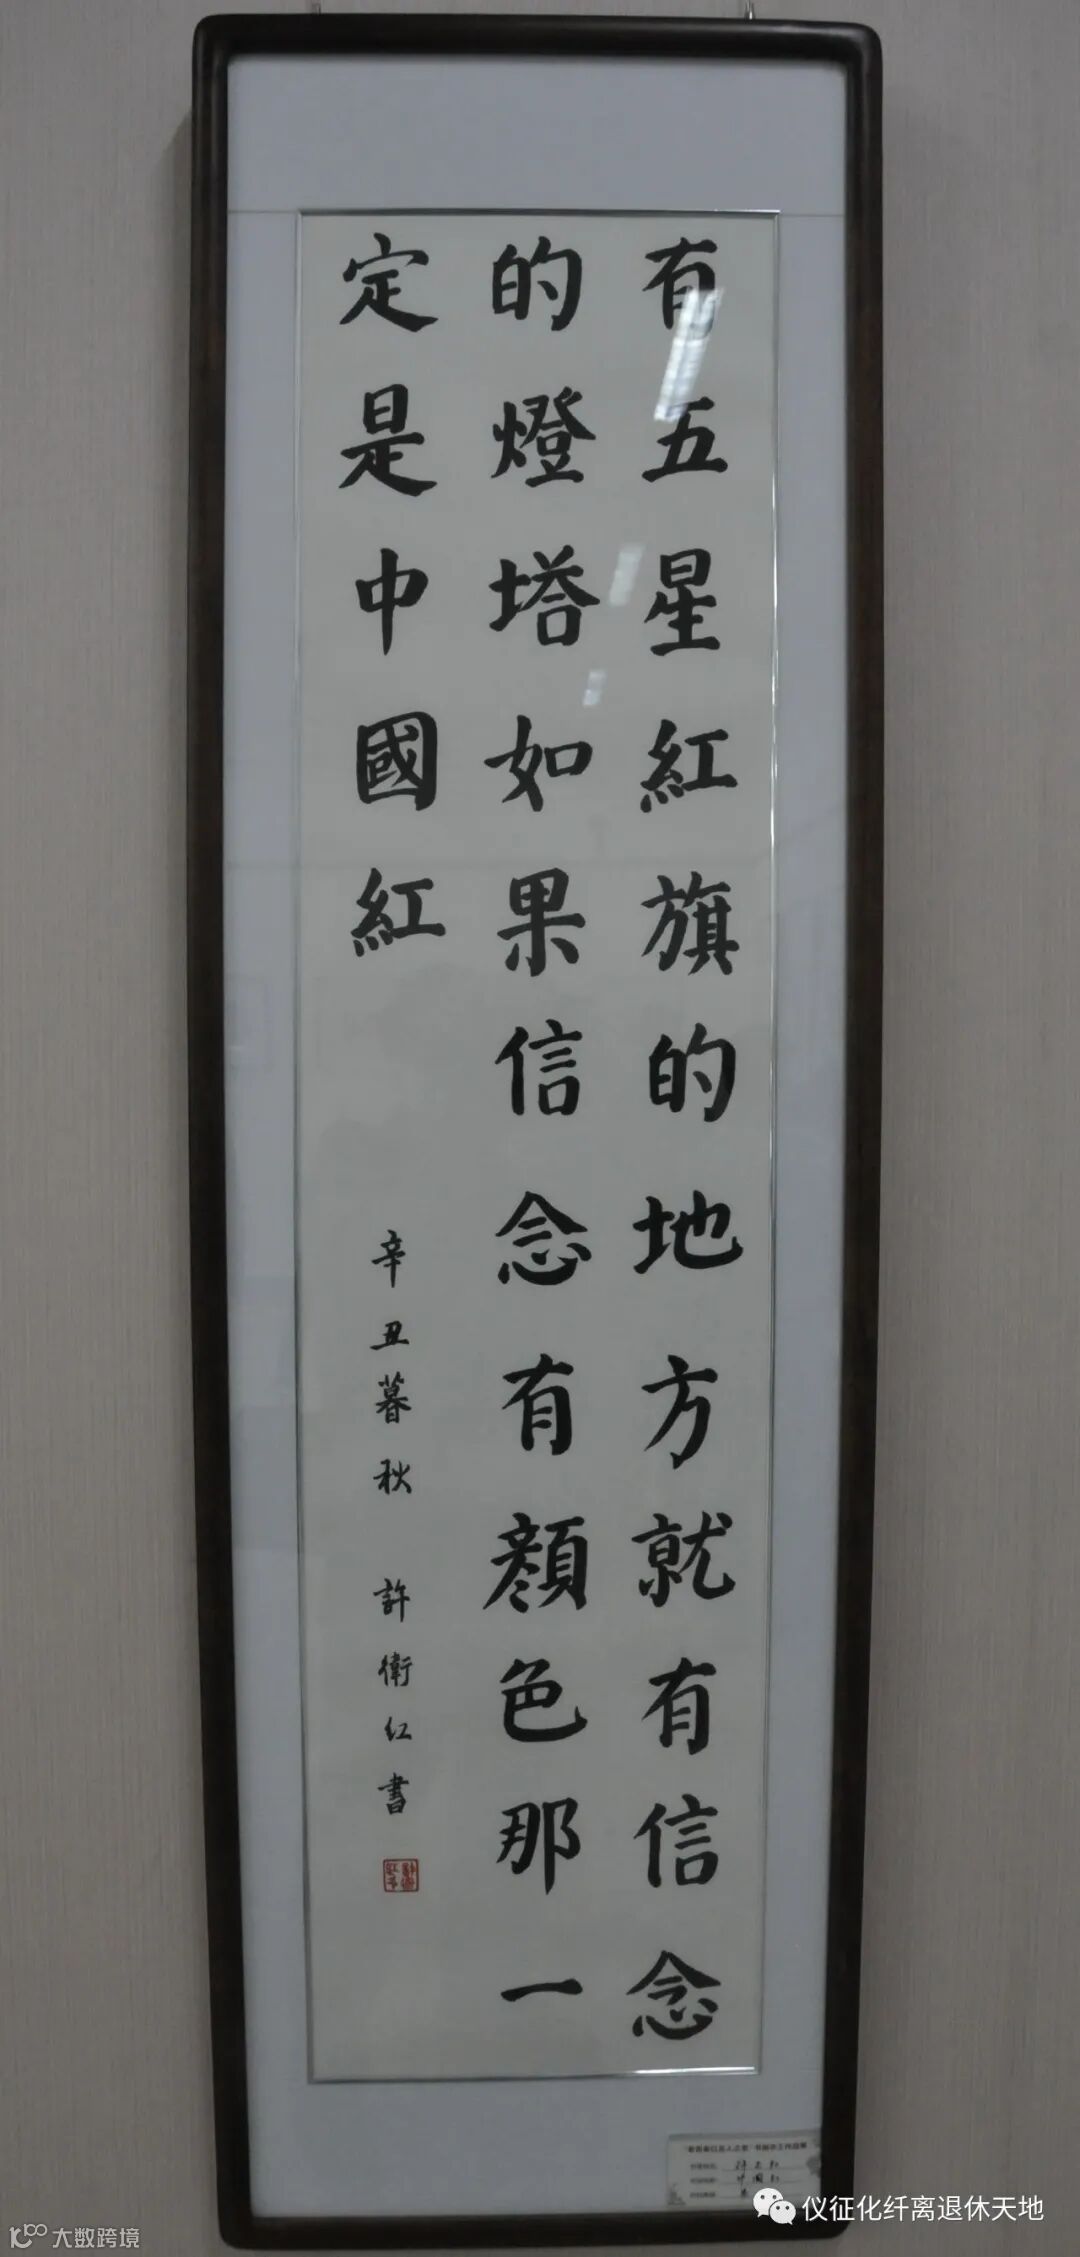 有五星紅旗的地方就有信念
的燈塔如果信念有顔色那一
定是中國紅
辛丑暮秋 許衛红書
中國红
仪征化纤离退休天地
大数跨境